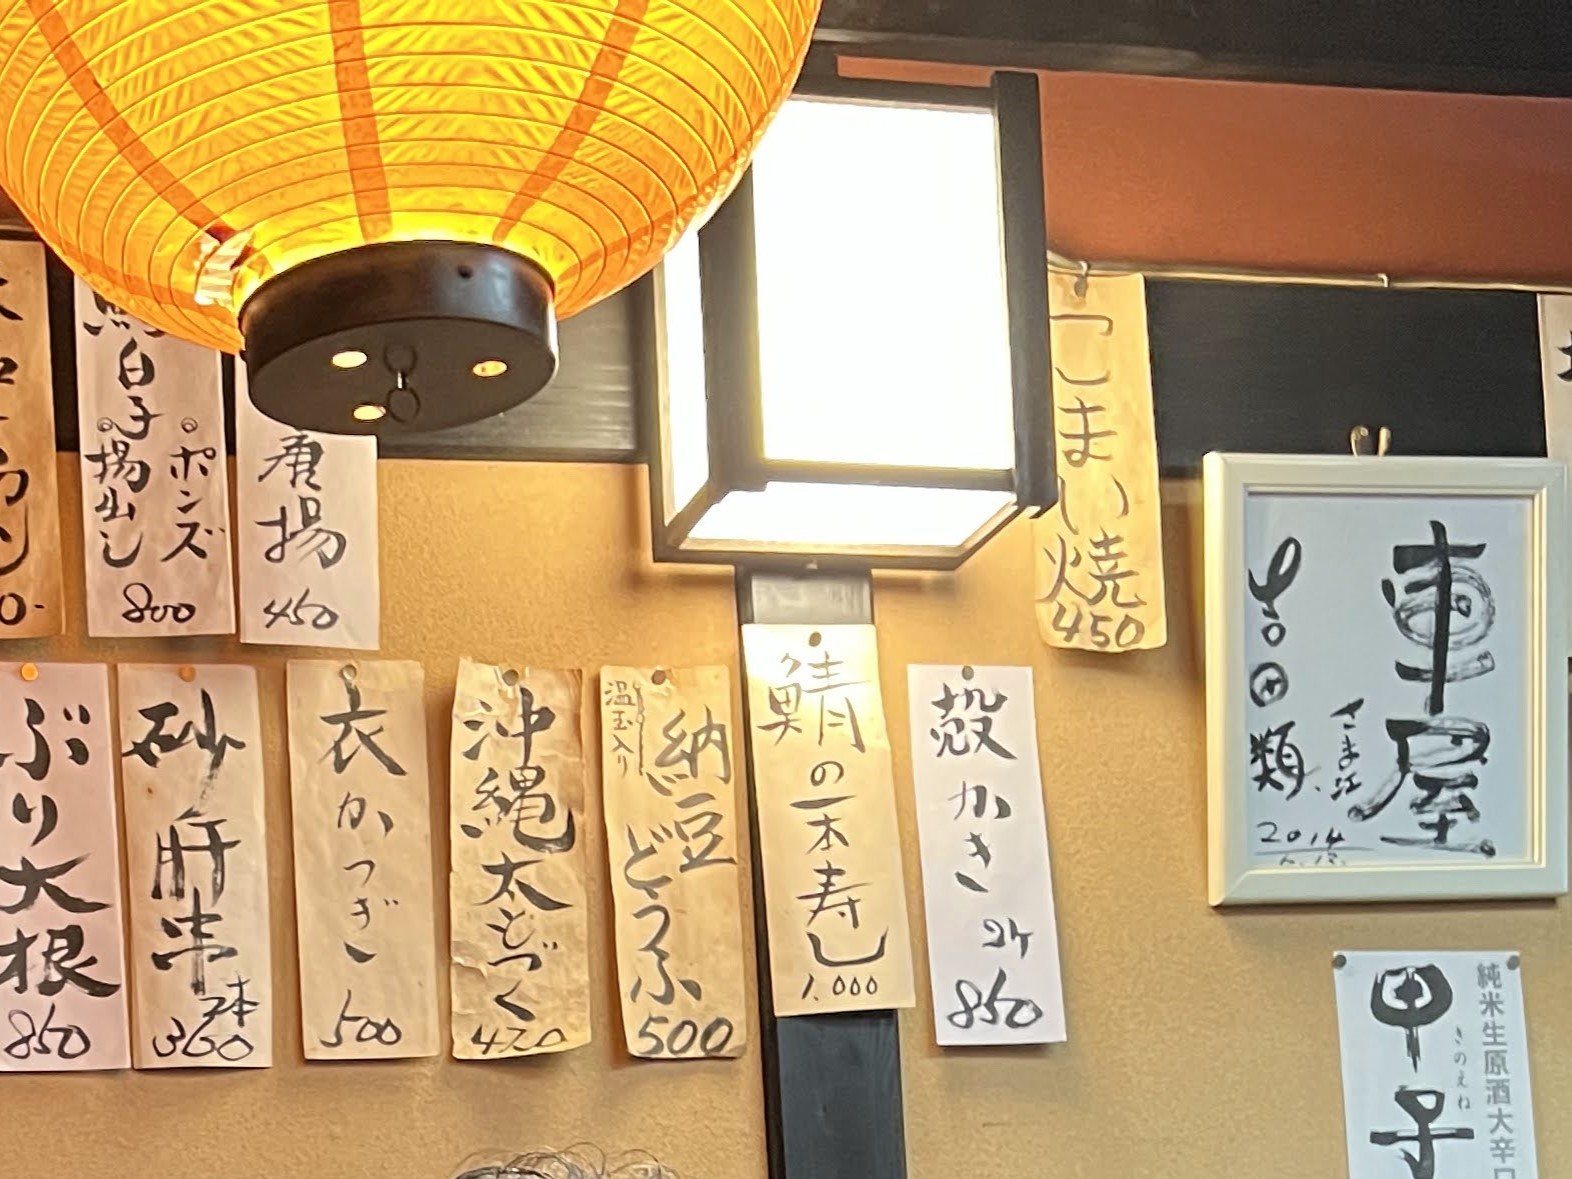 白子
揚出し
ポンズ
800
唐揚
450
こまい焼
450
ぶり大根
850
砂肝串
2本
360
衣かつぎ
500
沖縄太もづく
420
温玉入り
納豆どうふ
500
鯖の一本寿し
1,000
殻かき
2ケ
850
車屋
さま江
吉田類
2014
純米生原酒大辛口
きのえね
甲子